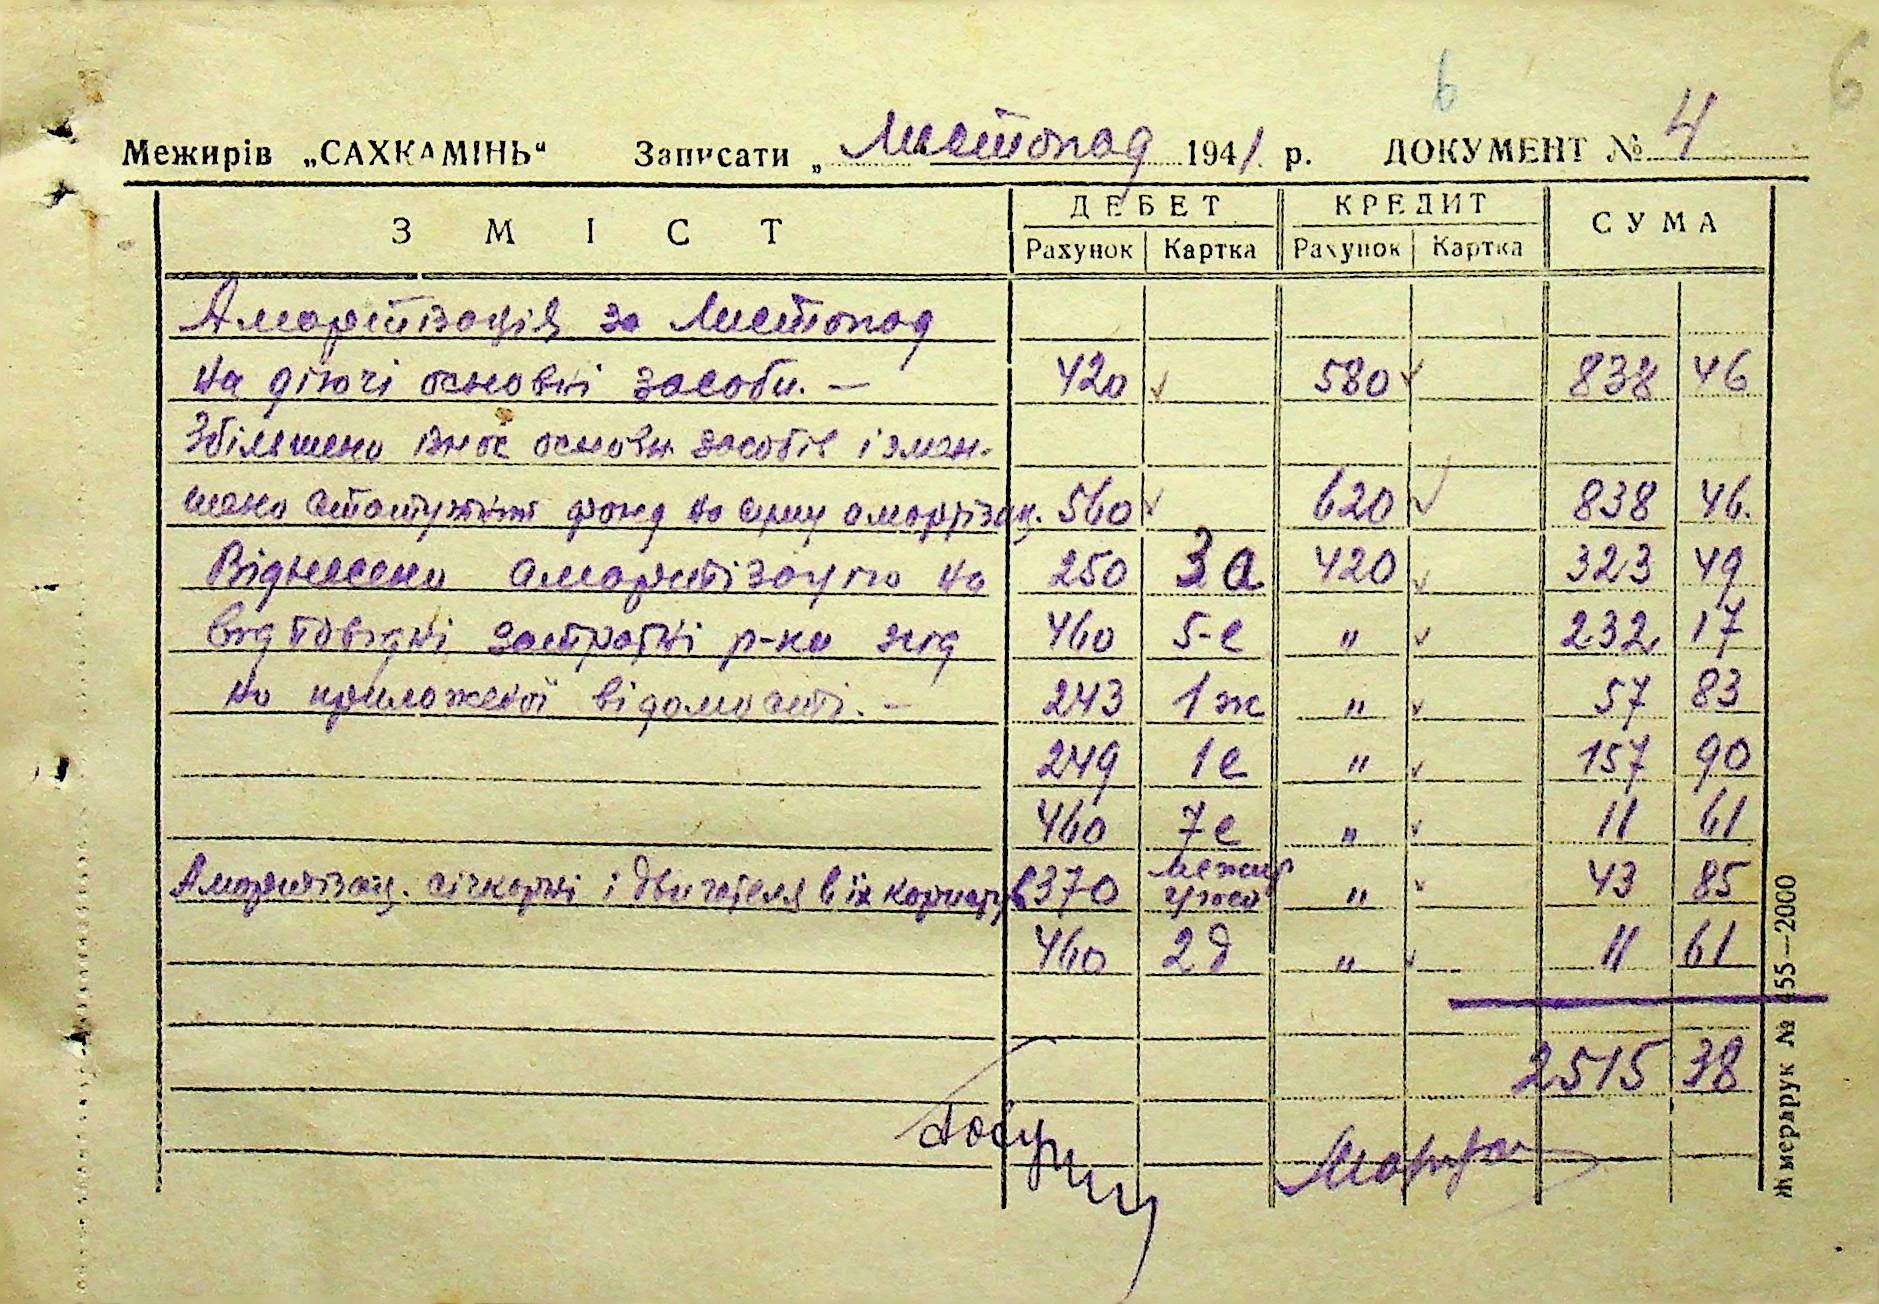 6
6
Межирів „САХКАМІНЬ“ Записати „ Листопад 1941 р. ДОКУМЕНТ № 4
ЗМІСТ ДЕБЕТ КРЕДИТ СУМА
Рахунок Картка Рахунок Картка
Амортізація за Листопад
на діючі основні засоби. — 420 580 838 46
Збільшено ізнос основн засобів і змен-
шено статутній фонд на суму амортізац. 560 620 838 46.
Віднесено амортізацію на 250 3а 420 323 49
відповідні затратні р-ки згід 460 5-е " 232 17
но приложеної відомості. — 243 1ж " 57 83
249 1е " 157 90
460 7е " 11 61
Амортізац. січкарні і двигателя в їх 370 " 43 85
460 2д " 11 61
2515 38
Жмердрук № 455—2000